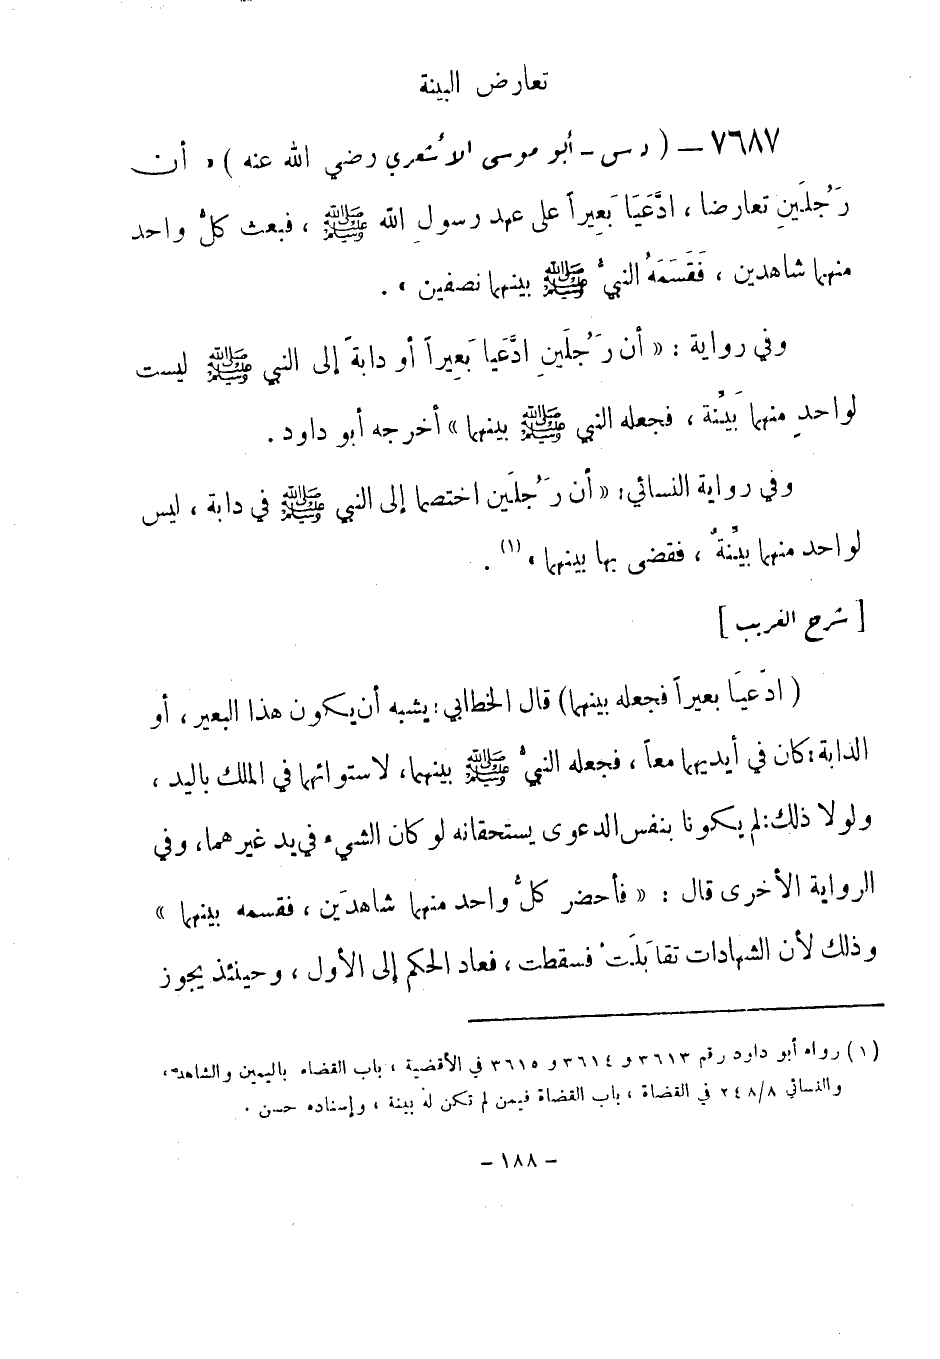 تعارض البينة
٧٦٨٧ – ( د س – أبو موسى الأشعري رضي الله عنه ) « أن
رَجُلَينِ تعارضا ، ادَّعَيَا بَعِيراً على عهد رسولِ الله ﷺ ، فبعث كلُّ واحد
منهما شاهدين ، فَقَسَمَهُ النبيُّ ﷺ بينهما نصفين » .
وفي رواية : « أن رَجُلَينِ ادَّعَيا بَعِيراً أو دابةً إلى النبي ﷺ ليست
لواحدٍ منهما بَيِّنة ، فجعله النبي ﷺ بينهما » أخرجه أبو داود .
وفي رواية النسائي: « أن رَجُلَين اختصما إلى النبي ﷺ في دابة ، ليس
لواحد منهما بيِّنةٌ ، فقضى بها بينهما » (١) .
[ شرح الغريب ]
( ادّعيَا بعيراً فجعله بينهما) قال الخطابي: يشبه أن يكون هذا البعير ، أو
الدابة: كان في أيديهما معاً ، فجعله النبيُّ ﷺ بينهما، لاستوائهما في الملك باليد ،
ولولا ذلك: لم يكونا بنفس الدعوى يستحقانه لو كان الشيء في يد غيرهما، وفي
الرواية الأخرى قال : « فأحضر كلُّ واحد منهما شاهدَين ، فقسمه بينهما »
وذلك لأن الشهادات تقابَلَتْ فسقطت ، فعاد الحكم إلى الأول ، وحينئذ يجوز
(١) رواه أبو داود رقم ٣٦١٣ و ٣٦١٤ و ٣٦١٥ في الأقضية ، باب القضاء باليمين والشاهد ،
والنسائي ٨/٢٤٨ في القضاة ، باب القضاة فيمن لم تكن له بينة ، وإسناده حسن .
– ١٨٨ –